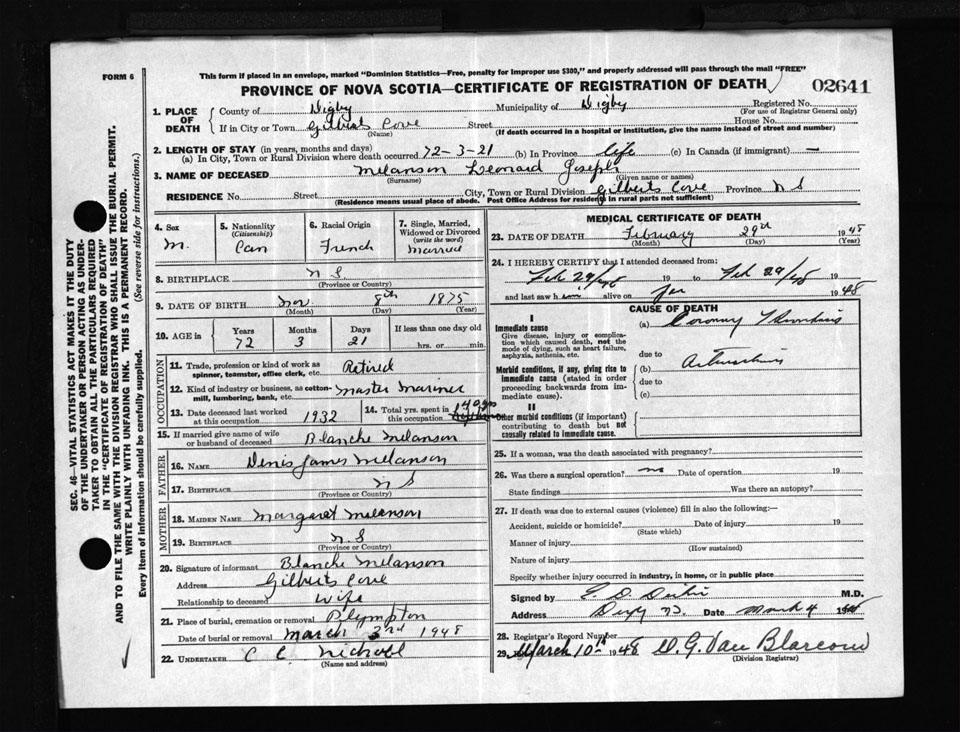 This form if placed in an envelope, marked "Dominion Statistics—Free, penalty for improper use $300," and properly addressed will pass through the mail "FREE"
FORM 6
PROVINCE OF NOVA SCOTIA—CERTIFICATE OF REGISTRATION OF DEATH
02641
1. PLACE OF DEATH
County of Digby Municipality of Digby Registered No.
(For use of Registrar General only)
If in City or Town Gilberts Cove Street House No.
(Name) (If death occurred in a hospital or institution, give the name instead of street and number)
2. LENGTH OF STAY (in years, months and days)
(a) In City, Town or Rural Division where death occurred 72-3-21 (b) In Province life (c) In Canada (if immigrant) —
3. NAME OF DECEASED Melanson Leonard Joseph
(Surname) (Given name or names)
RESIDENCE No. Street City, Town or Rural Division Gilberts Cove Province N S
(Residence means usual place of abode. Post Office Address for residents in rural parts not sufficient)
4. Sex
M.
5. Nationality
(Citizenship)
Can
6. Racial Origin
French
7. Single, Married, Widowed or Divorced
(write the word)
Married
8. BIRTHPLACE N S
(Province or Country)
9. DATE OF BIRTH Nov. 8th 1875
(Month) (Day) (Year)
10. AGE in Years Months Days If less than one day old
72 3 21 hrs. or min.
OCCUPATION
11. Trade, profession or kind of work as spinner, teamster, office clerk, etc. Retired
12. Kind of industry or business, as cotton-mill, lumbering, bank, etc. Master Mariner
13. Date deceased last worked at this occupation 1932
14. Total yrs. spent in this occupation 40 yrs
15. If married give name of wife or husband of deceased Blanche Melanson
FATHER
16. NAME Denis James Melanson
17. BIRTHPLACE N S
(Province or Country)
MOTHER
18. MAIDEN NAME Margaret Melanson
19. BIRTHPLACE N.S
(Province or Country)
20. Signature of informant Blanche Melanson
Address Gilberts Cove
Relationship to deceased Wife
21. Place of burial, cremation or removal Plympton
Date of burial or removal March 3rd 1948
22. UNDERTAKER C C Nicholl
(Name and address)
MEDICAL CERTIFICATE OF DEATH
23. DATE OF DEATH February 29th 1948
(Month) (Day) (Year)
24. I HEREBY CERTIFY that I attended deceased from:
Feb 29/48 19 to Feb 29/48 19
and last saw h im alive on 1948
CAUSE OF DEATH
I
Immediate cause
Give disease, injury or complication which caused death, not the mode of dying, such as heart failure, asphyxia, asthenia, etc.
(a) Coronary Thrombosis
due to
Morbid conditions, if any, giving rise to immediate cause (stated in order proceeding backwards from immediate cause).
(b)
due to
(c)
II
Other morbid conditions (if important) contributing to death but not causally related to immediate cause.
25. If a woman, was the death associated with pregnancy?
26. Was there a surgical operation? no Date of operation 19
State findings Was there an autopsy?
27. If death was due to external causes (violence) fill in also the following:—
Accident, suicide or homicide? Date of injury 19
(State which)
Manner of injury
(How sustained)
Nature of injury
Specify whether injury occurred in industry, in home, or in public place
Signed by M.D.
Address Date March 4 1948
28. Registrar's Record Number
29. March 10th 1948 D. G. Van Blarcom
(Division Registrar)
SEC. 46—VITAL STATISTICS ACT MAKES IT THE DUTY
OF THE UNDERTAKER OR PERSON ACTING AS UNDER-
TAKER TO OBTAIN ALL THE PARTICULARS REQUIRED
IN THE "CERTIFICATE OF REGISTRATION OF DEATH"
AND TO FILE THE SAME WITH THE DIVISION REGISTRAR WHO SHALL ISSUE THE BURIAL PERMIT.
WRITE PLAINLY WITH UNFADING INK. THIS IS A PERMANENT RECORD.
Every item of information should be carefully supplied. (See reverse side for instructions.)